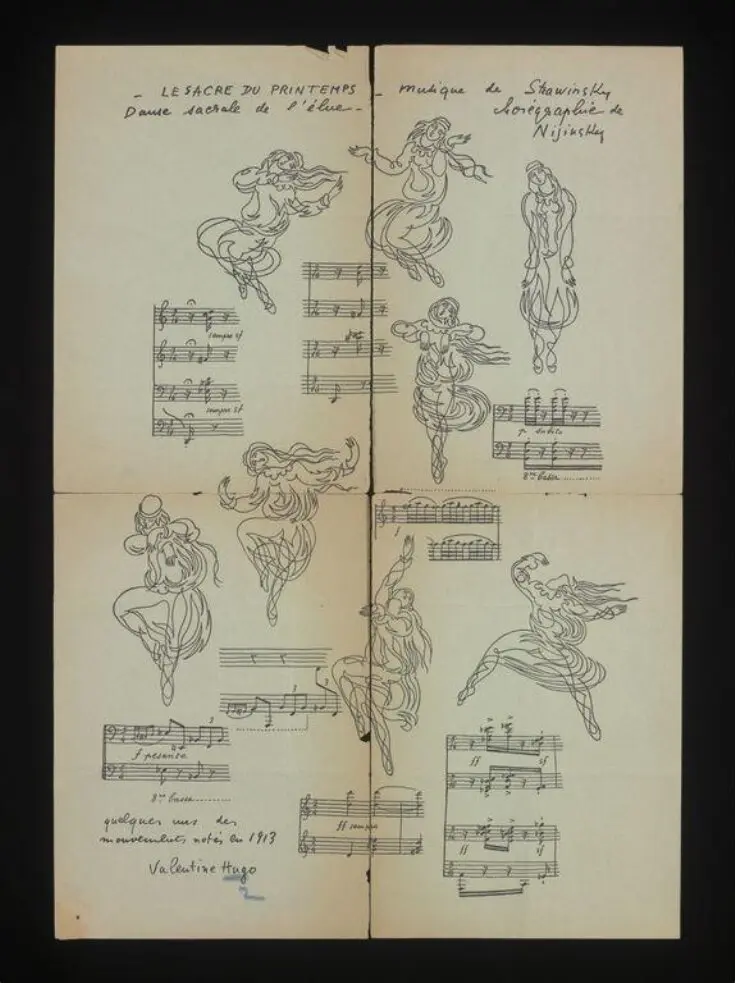 – LE SACRE DU PRINTEMPS – musique de Strawinsky
Danse sacrale de l'élue – chorégraphie de
Nijinsky
sempre sf
sempre sf
p subito
8ve bassa
f
f pesante
3
3
3
8ve bassa
ff sf
ff sempre
ff sf
quelques uns des
mouvements notés en 1913
Valentine Hugo
2